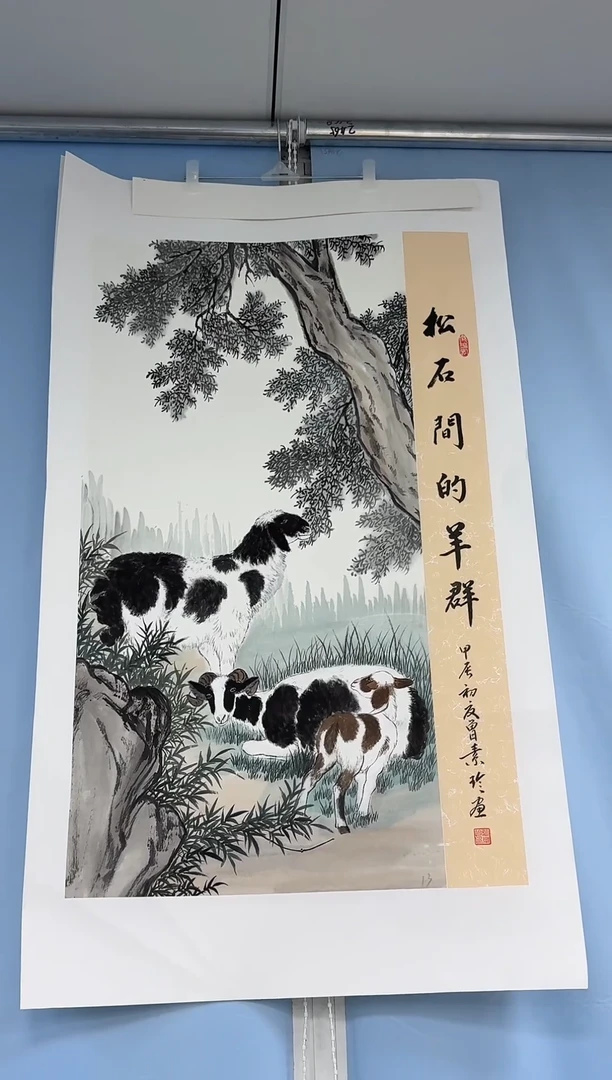 松石間的羊群
甲辰初夏曾素玲畫
13